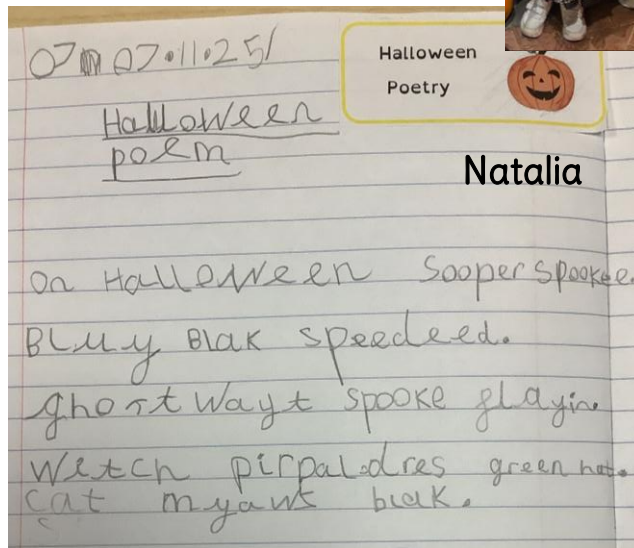 07.11.25
Halloween
Poetry
Halloween
poem
Natalia
On Halloween Sooper spookee
Bluy Blak speedeed.
ghost wayt spooke flayin.
Witch pirpal dres green hat.
cat myaws blak.